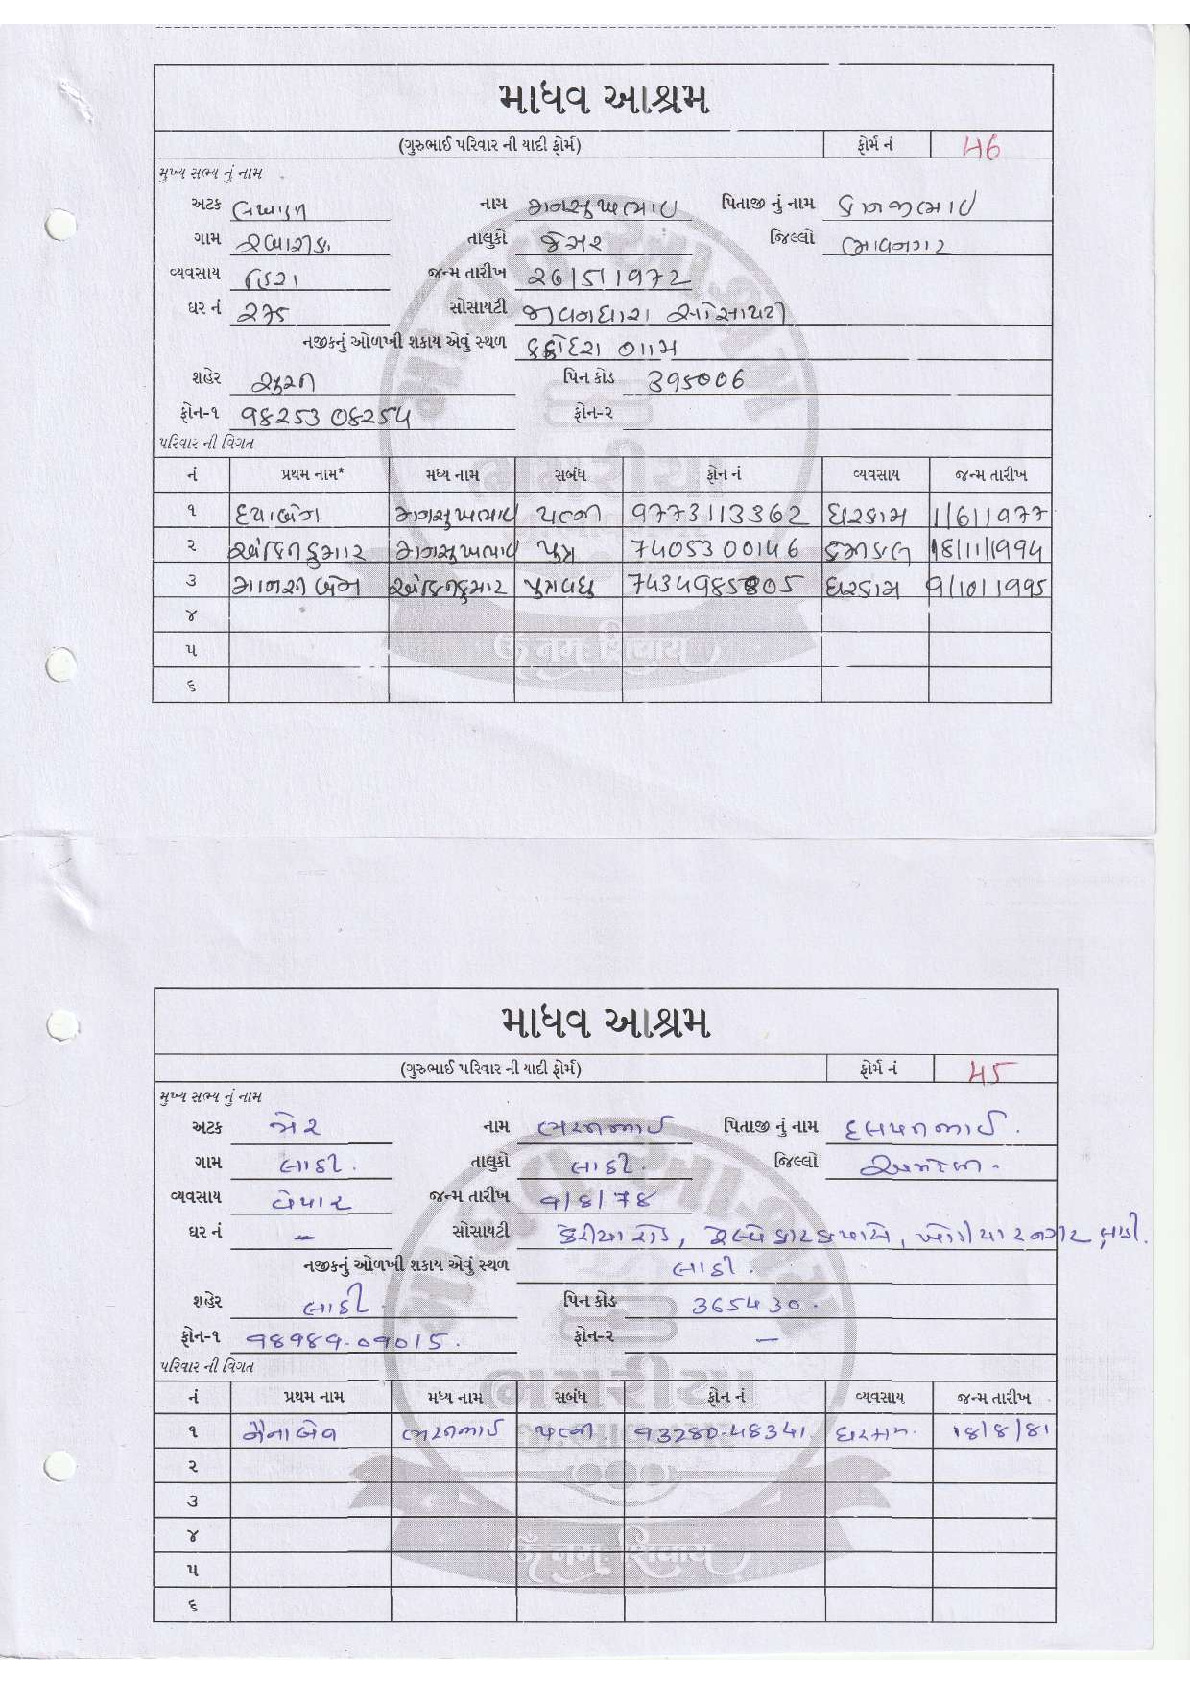 માધવ આશ્રમ
(ગુરુભાઈ પરિવાર ની યાદી ફોર્મ) ફોર્મ નં ૫6
મુખ્ય સભ્ય નું નામ
અટક લખાણ નામ મનસુખભાઇ પિતાજી નું નામ કાનજીભાઇ
ગામ તાલુકો જેસર જિલ્લો ભાવનગર
વ્યવસાય હિરા જન્મ તારીખ ૨6/5/૧૯૭૨
ઘર નં ૨૭૬ સોસાયટી જીવનધારા સોસાયટી
નજીકનું ઓળખી શકાય એવું સ્થળ ગામ
શહેર સુરત પિન કોડ 3૯૫૦૦6
ફોન-૧ ૯૮253 ૦૮25૫ ફોન-૨
પરિવાર ની વિગત
નં પ્રથમ નામ* મધ્ય નામ સબંધ ફોન નં વ્યવસાય જન્મ તારીખ
૧ દયાબેન મનસુખભાઇ પત્ની ૯૭૭3113362 ઘરકામ 1/6/1૯૭૭
૨ અંકિતકુમાર મનસુખભાઇ પુત્ર ૭૪૦5300146 ૧૮/11/1૯૯૪
૩ માનસી બેન અંકિતકુમાર પુત્રવધુ ઘરકામ ૯/10/1995
૪
૫
૬
માધવ આશ્રમ
(ગુરુભાઈ પરિવાર ની યાદી ફોર્મ) ફોર્મ નં ૫5
મુખ્ય સભ્ય નું નામ
અટક નામ ભરતભાઈ પિતાજી નું નામ દલપતભાઈ.
ગામ લાઠી. તાલુકો લાઠી. જિલ્લો અમરેલી.
વ્યવસાય વેપાર જન્મ તારીખ ૧/૮/૭૮
ઘર નં – સોસાયટી કેરીયા રોડ,
નજીકનું ઓળખી શકાય એવું સ્થળ લાઠી.
શહેર લાઠી. પિન કોડ 365430.
ફોન-૧ ૯૮૯૮૯.૦૧૦15. ફોન-૨ –
પરિવાર ની વિગત
નં પ્રથમ નામ મધ્ય નામ સબંધ ફોન નં વ્યવસાય જન્મ તારીખ
૧ નૈનાબેન ભરતભાઈ પત્ની ૯3280.૫૮3૪૧. ઘરકામ. ૧૮/૮/૮૧
૨
૩
૪
૫
૬